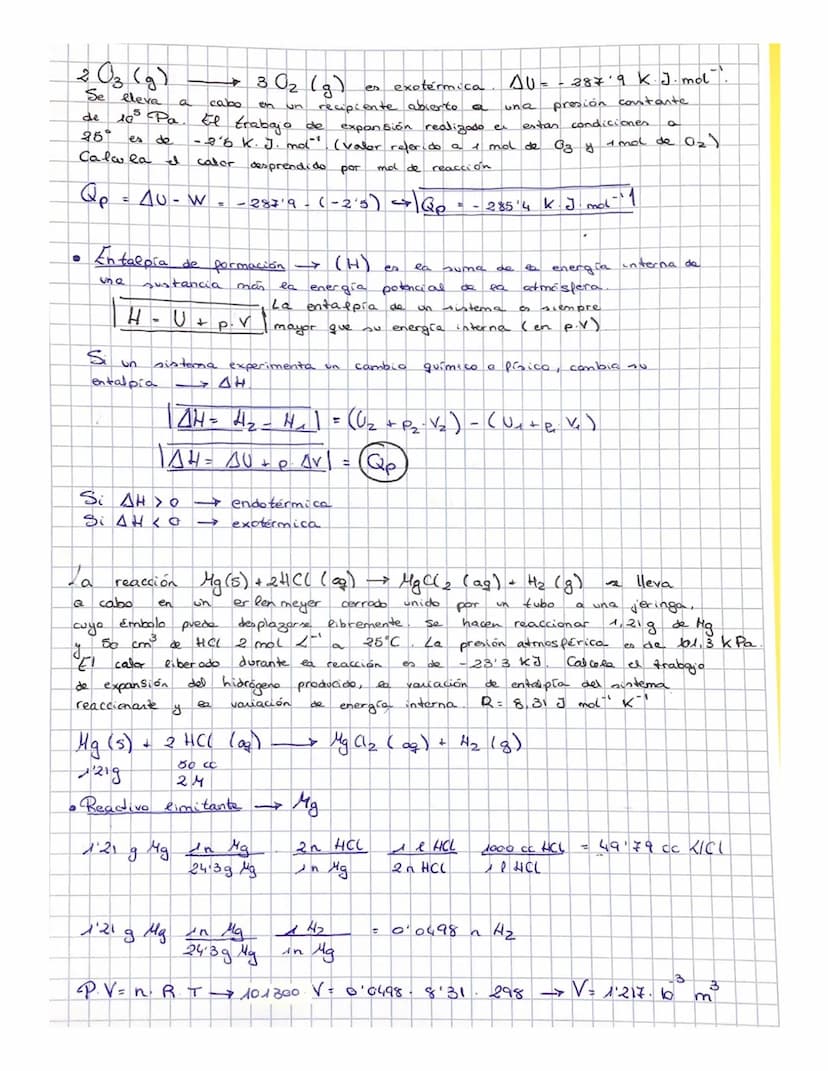 2 O₃ (g) ⟶ 3 O₂ (g) es exotérmica. ΔU = - 287'9 K.J.mol⁻¹.
Se lleva a cabo en un recipiente abierto a una presión constante
de 10⁵ Pa. El trabajo de expansión realizado en estas condiciones a
25° es de - 2'5 K.J.mol⁻¹. (Valor referido a 1 mol de O₃ y 1 mol de O₂)
Calcula el calor desprendido por mol de reacción
Qp = ΔU - W = - 287'9 - (-2'5) → Qp = - 285'4 K.J.mol⁻¹
• Entalpía de formación → (H) es la suma de la energía interna de
una sustancia más la energía potencial de la atmósfera.
H = U + p.V La entalpía de un sistema es siempre
mayor que su energía interna (en p.V)
Si un sistema experimenta un cambio químico o físico, cambia su
entalpía → ΔH
ΔH = H₂ - H₁ = (U₂ + P₂.V₂) - (U₁ + P₁.V₁)
ΔH = ΔU + p.ΔV = Qp
Si ΔH > 0 → endotérmica
Si ΔH < 0 → exotérmica
La reacción Mg(s) + 2HCl (aq) → MgCl₂ (aq) + H₂ (g) se lleva
a cabo en un erlenmeyer cerrado unido por un tubo a una jeringa,
cuyo émbolo puede desplazarse libremente. Se hacen reaccionar 1,21g de Mg
y 50 cm³ de HCl 2 mol L⁻¹ a 25°C. La presión atmosférica es de 101,3 kPa.
El calor liberado durante la reacción es de - 23'3 KJ. Calcula el trabajo
de expansión del hidrógeno producido, la variación de entalpía del sistema
reaccionante y la variación de energía interna. R = 8,31 J mol⁻¹ K⁻¹
Mg (s) + 2 HCl (aq) ⟶ MgCl₂ (aq) + H₂ (g)
1'21g 50 cc
2 M
• Reactivo limitante → Mg
1'21 g Mg 1n Mg/24'3g Mg . 2n HCl/1n Mg 1 l HCl/2n HCl 1000 cc HCl/1 l HCl = 49'79 cc HCl
1'21 g Mg 1n Mg/24'3g Mg 1 H₂/1n Mg = 0'0498 n H₂
P.V = n. R T → 101300 . V = 0'0498 . 8'31 . 298 → V = 1'217.10⁻³ m³